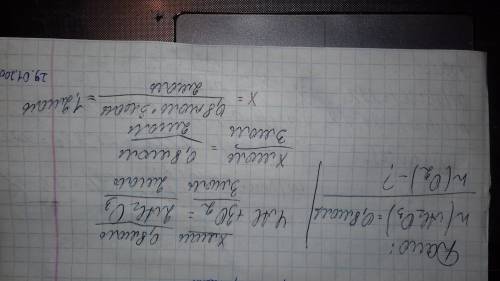 Дано:
n(Al₂O₃)=0,8моль
n(O₂) - ?
xмоль 0,8моль
4Al + 3O₂ = 2Al₂O₃
3моль 2моль
xмоль / 3моль = 0,8моль / 2моль
x = 0,8моль·3моль / 2моль = 1,2моль